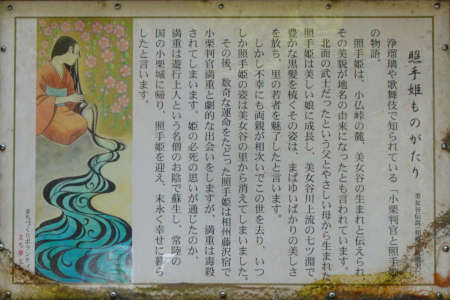 照手姫ものがたり
浄瑠璃や歌舞伎で知られている「小栗判官と照手姫」
の物語。
照手姫は、小仏峠の麓、美女谷の生まれと伝えられ
その美貌が地名の由来になったとも言われています。
北面の武士だったという父とやさしい母から生まれた
照手姫は美しい娘に成長し、美女谷川上流の七ツ淵で
豊かな黒髪を梳くその姿は、まばゆいばかりの美しさ
を放ち、里の若者を魅了したと言います。
しかし不幸にも両親が相次いでこの世を去り、いつ
しか照手姫の姿は美女谷の里から消えてしまいました。
その後、数奇な運命をたどった照手姫は相州藤沢宿で
小栗判官満重と劇的な出会いをしますが、満重は毒殺
されてしまいます。姫の必死の思いが通じたのか、
満重は遊行上人という名僧のお陰で蘇生し、常陸の
国の小栗城に帰り、照手姫を迎え、末永く幸せに暮ら
したと言います。